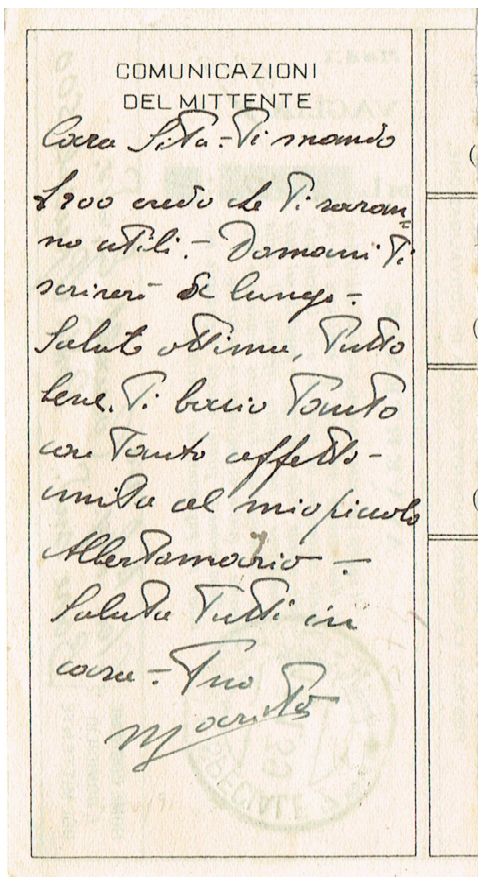 COMUNICAZIONI
DEL MITTENTE
Cara Sita - Ti mando
£200 credo che Ti saran=
no utili. - Domani Ti
scriverò di lungo -
Salute ottima, Tutto
bene. Ti bacio Tanto
con Tanto affetto -
unita al mio piccolo
Albertomario -
Saluta Tutti in
casa - Tuo
Marito
SPECIALE